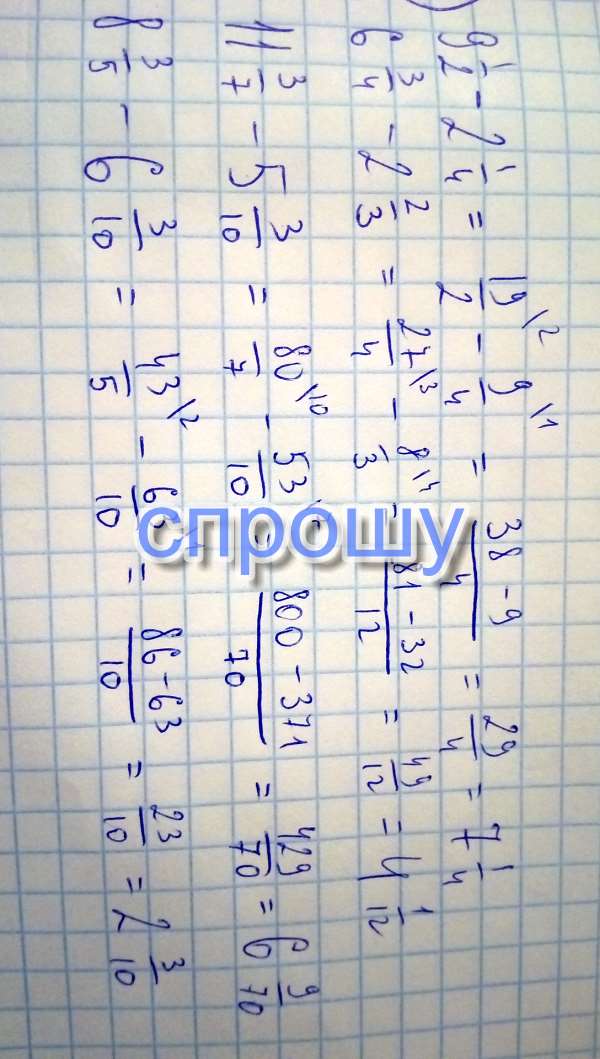 9 1/2 - 2 1/4 = 19/2 \2 - 9/4 \1 = 38-9/4 = 29/4 = 7 1/4
6 3/4 - 2 2/3 = 27/4 \3 - 8/3 \4 = 81-32/12 = 49/12 = 4 1/12
11 3/7 - 5 3/10 = 80/7 \10 - 53/10 = 800-371/70 = 429/70 = 6 9/70
8 3/5 - 6 3/10 = 43/5 \2 - 63/10 \1 = 86-63/10 = 23/10 = 2 3/10
спрошу